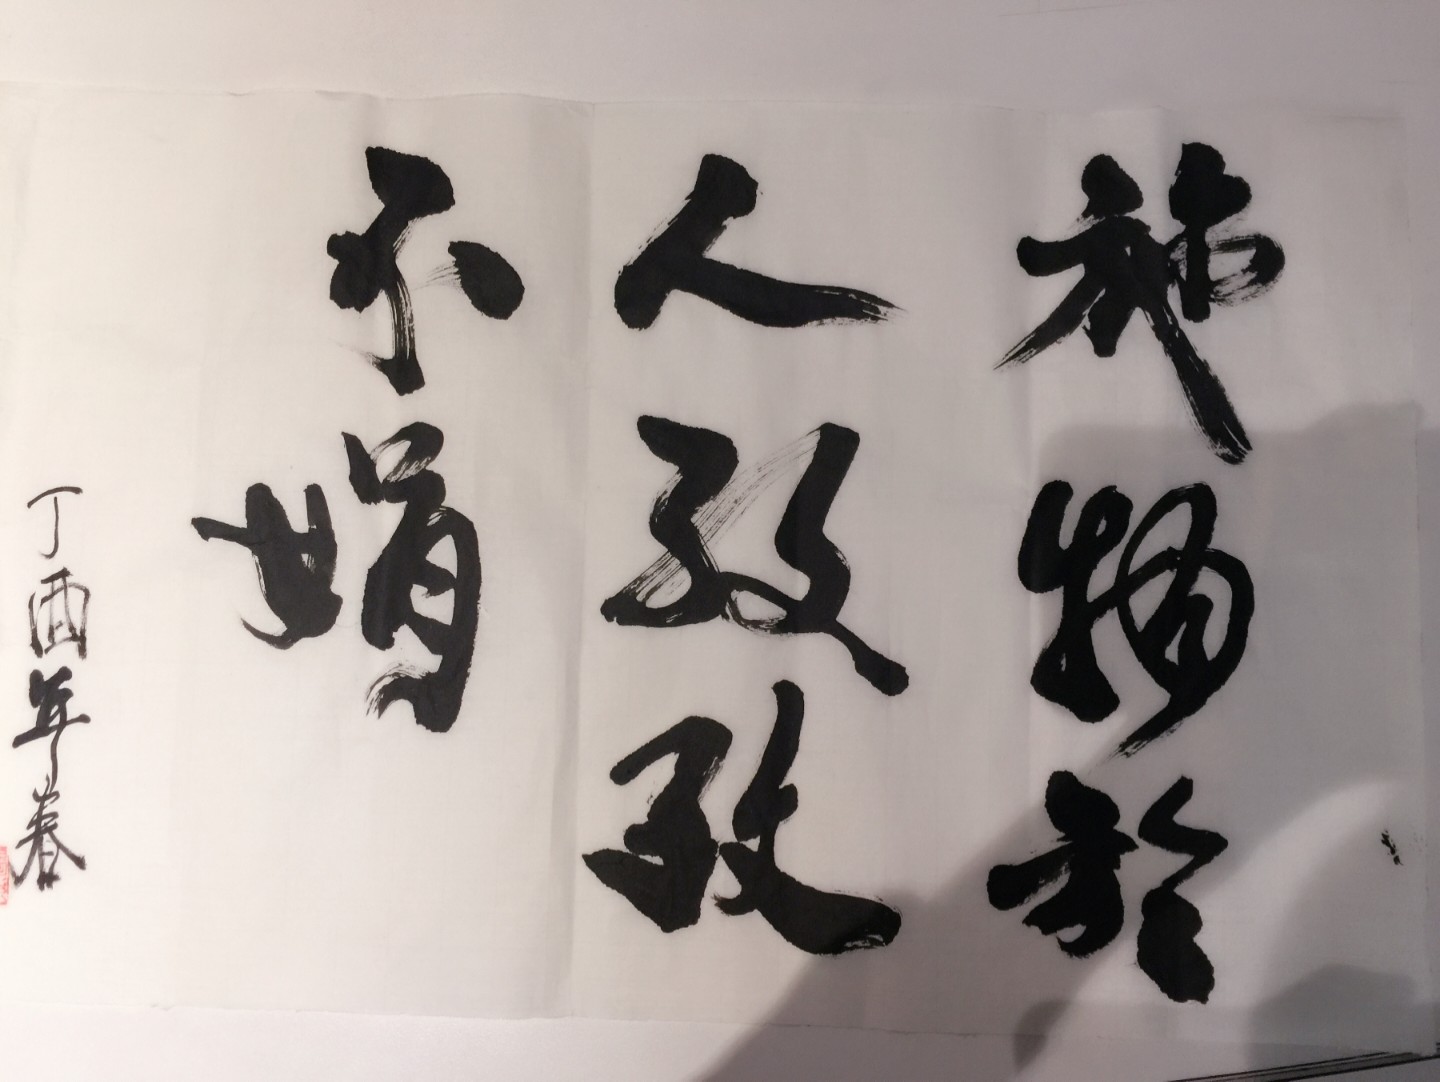 施物於
人孜孜
不娟
丁酉年春